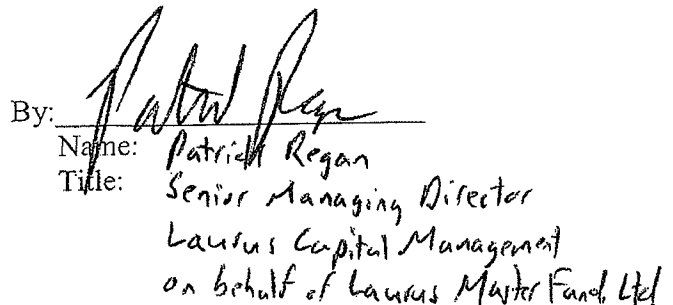 By: Patrick Regan
Name: Patrick Regan
Title: Senior Managing Director
Laurus Capital Management
on behalf of Laurus Master Fund, Ltd